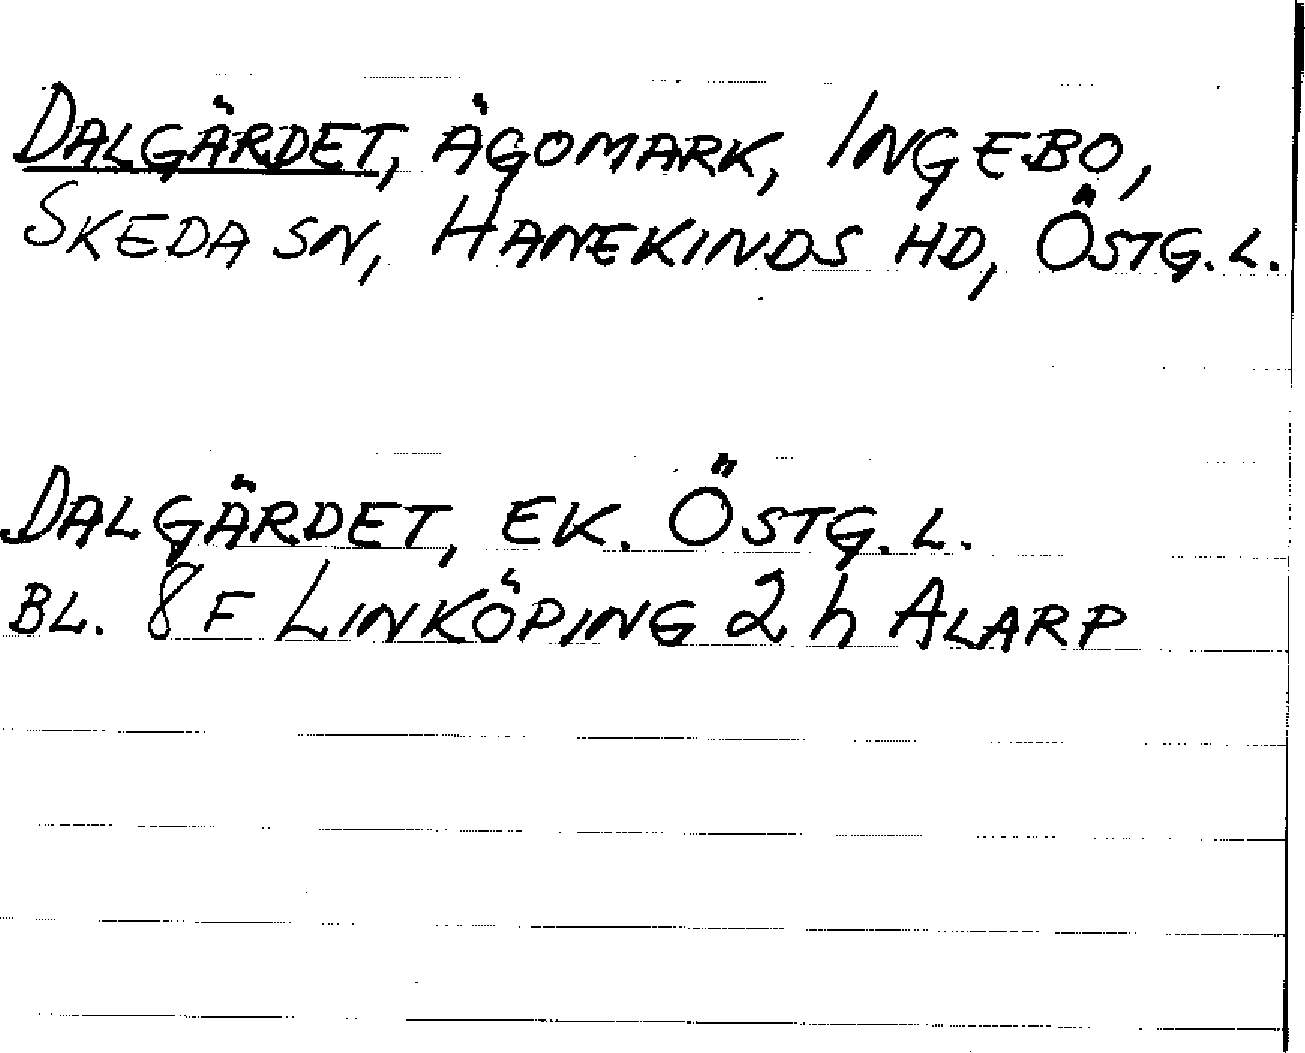 DALGÄRDET, ÄGOMARK, INGEBO,
SKEDA SN, HANEKINDS HD, ÖSTG. L.
DALGÄRDET, EK. ÖSTG. L.
BL. 8 F LINKÖPING 2 h ALARP